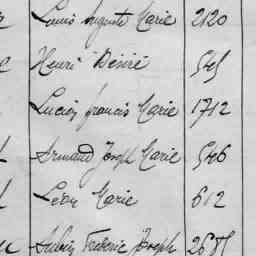 Louis Auguste Marie 2120
Henri Désiré 545
Lucien Francis Marie 1712
Armand Joseph Marie 546
Léon Marie 612
Frédéric Joseph 2685